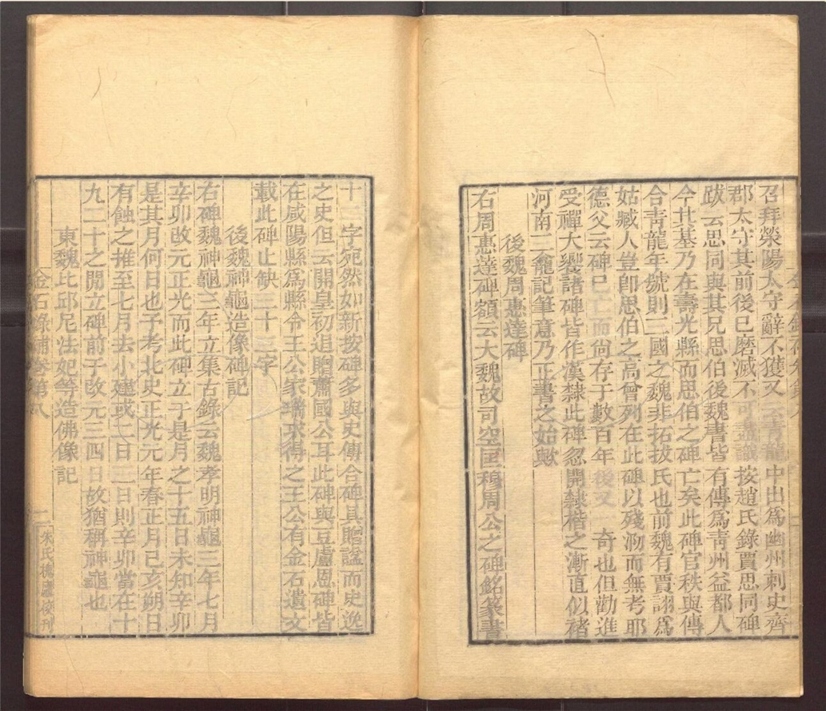 召拜滎陽太守辭不獲又云青龍中出爲幽州刺史齊
郡太守其前後已磨滅不可盡識按趙氏錄賈思同碑
跋云思同與其兄思伯後魏書皆有傳爲青州益都人
今其墓乃在壽光縣而思伯之碑亡矣此碑官秩與傳
合青龍年號則三國之魏非拓拔氏也前魏有賈詡爲
姑臧人豈卽思伯之高曾列在此碑以殘泐而無考耶
德父云碑已亡而尙存于數百年後又 奇也但勸進
受禪大饗諸碑皆作漢隸此碑忽開隸楷之漸直似褚
河南三龕記筆意乃正書之始歟
後魏周惠達碑
右周惠達碑額云大魏故司空匡穆周公之碑銘篆書
十二字宛然如新按碑多與史傳合碑具贈諡而史逸
之史但云開皇初追贈蕭國公耳此碑與豆盧恩碑皆
在咸陽縣爲縣令王公家瑞求得之王公有金石遺文
載此碑止缺三十三字
後魏神龜造像碑記
右碑魏神龜三年立集古錄云魏孝明神龜三年七月
辛卯改元正光而此碑立于是月之十五日未知辛卯
是其月何日也予考北史正光元年春正月己亥朔日
有蝕之推至七月去小建或二日三日則辛卯當在十
九二十之間立碑前于改元三四日故猶稱神龜也
東魏比邱尼法妃等造佛像記
金石錄補卷第八
二
朱氏槐廬校刊